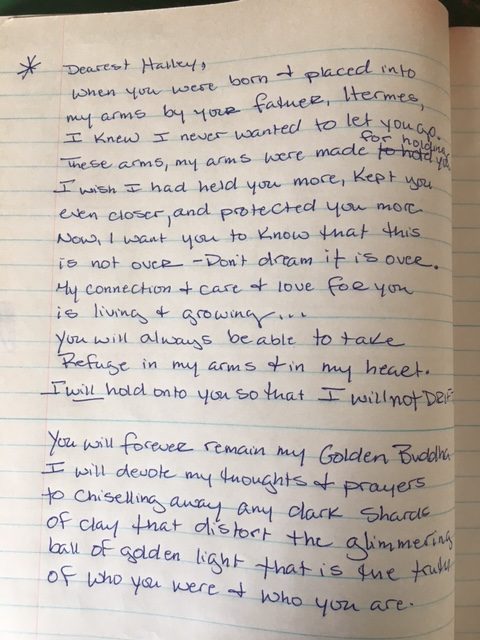 * Dearest Halley,
When you were born + placed into
my arms by your father, Hermes,
I knew I never wanted to let you go.
for holding
These arms, my arms were made to hold you
I wish I had held you more, kept you
even closer, and protected you more
Now, I want you to know that this
is not over - Don't dream it is over.
My connection + care + love for you
is living + growing...
You will always be able to take
Refuge in my arms + in my heart.
I will hold onto you so that I will not DRIFT
You will forever remain my Golden Buddha
I will devote my thoughts + prayers
to chiselling away any dark shards
of clay that distort the glimmering
ball of golden light that is the truth
of who you were + who you are.